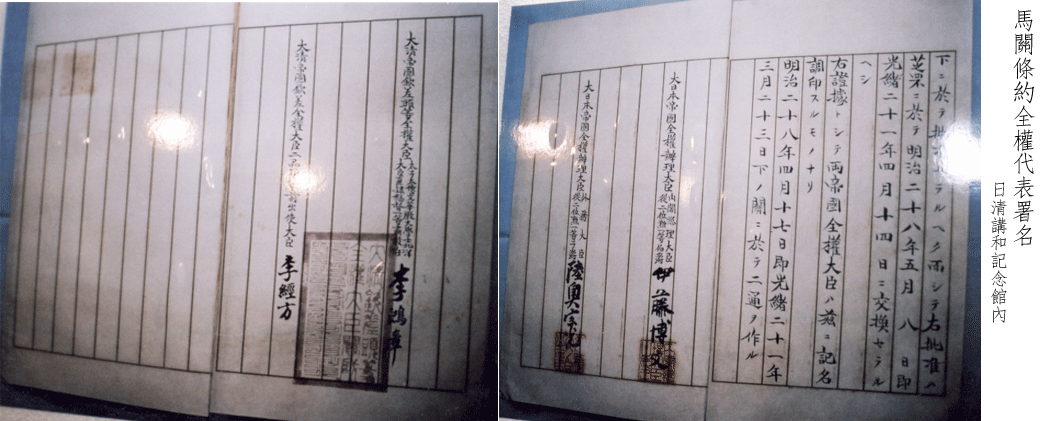 馬關條約全權代表署名
日清講和記念館內
下ニ於テ批准ラルヘク而シテ右批准ハ
芝罘ニ於テ明治二十八年五月八日即
光緒二十一年四月十四日ニ交換セラル
ヘシ
右證據トシテ兩帝國全權大臣ハ茲ニ記名
調印スルモノナリ
明治二十八年四月十七日即光緒二十一年
三月二十三日下ノ關ニ於テ二通ヲ作ル
大日本帝國全權辦理大臣 內閣總理大臣
從二位勳一等伯爵 伊藤博文
大日本帝國全權辦理大臣 外務大臣
從二位勳一等子爵 陸奧宗光
大清帝國欽差頭等全權大臣 李鴻章
大清帝國欽差全權大臣二品前出使大臣 李經方